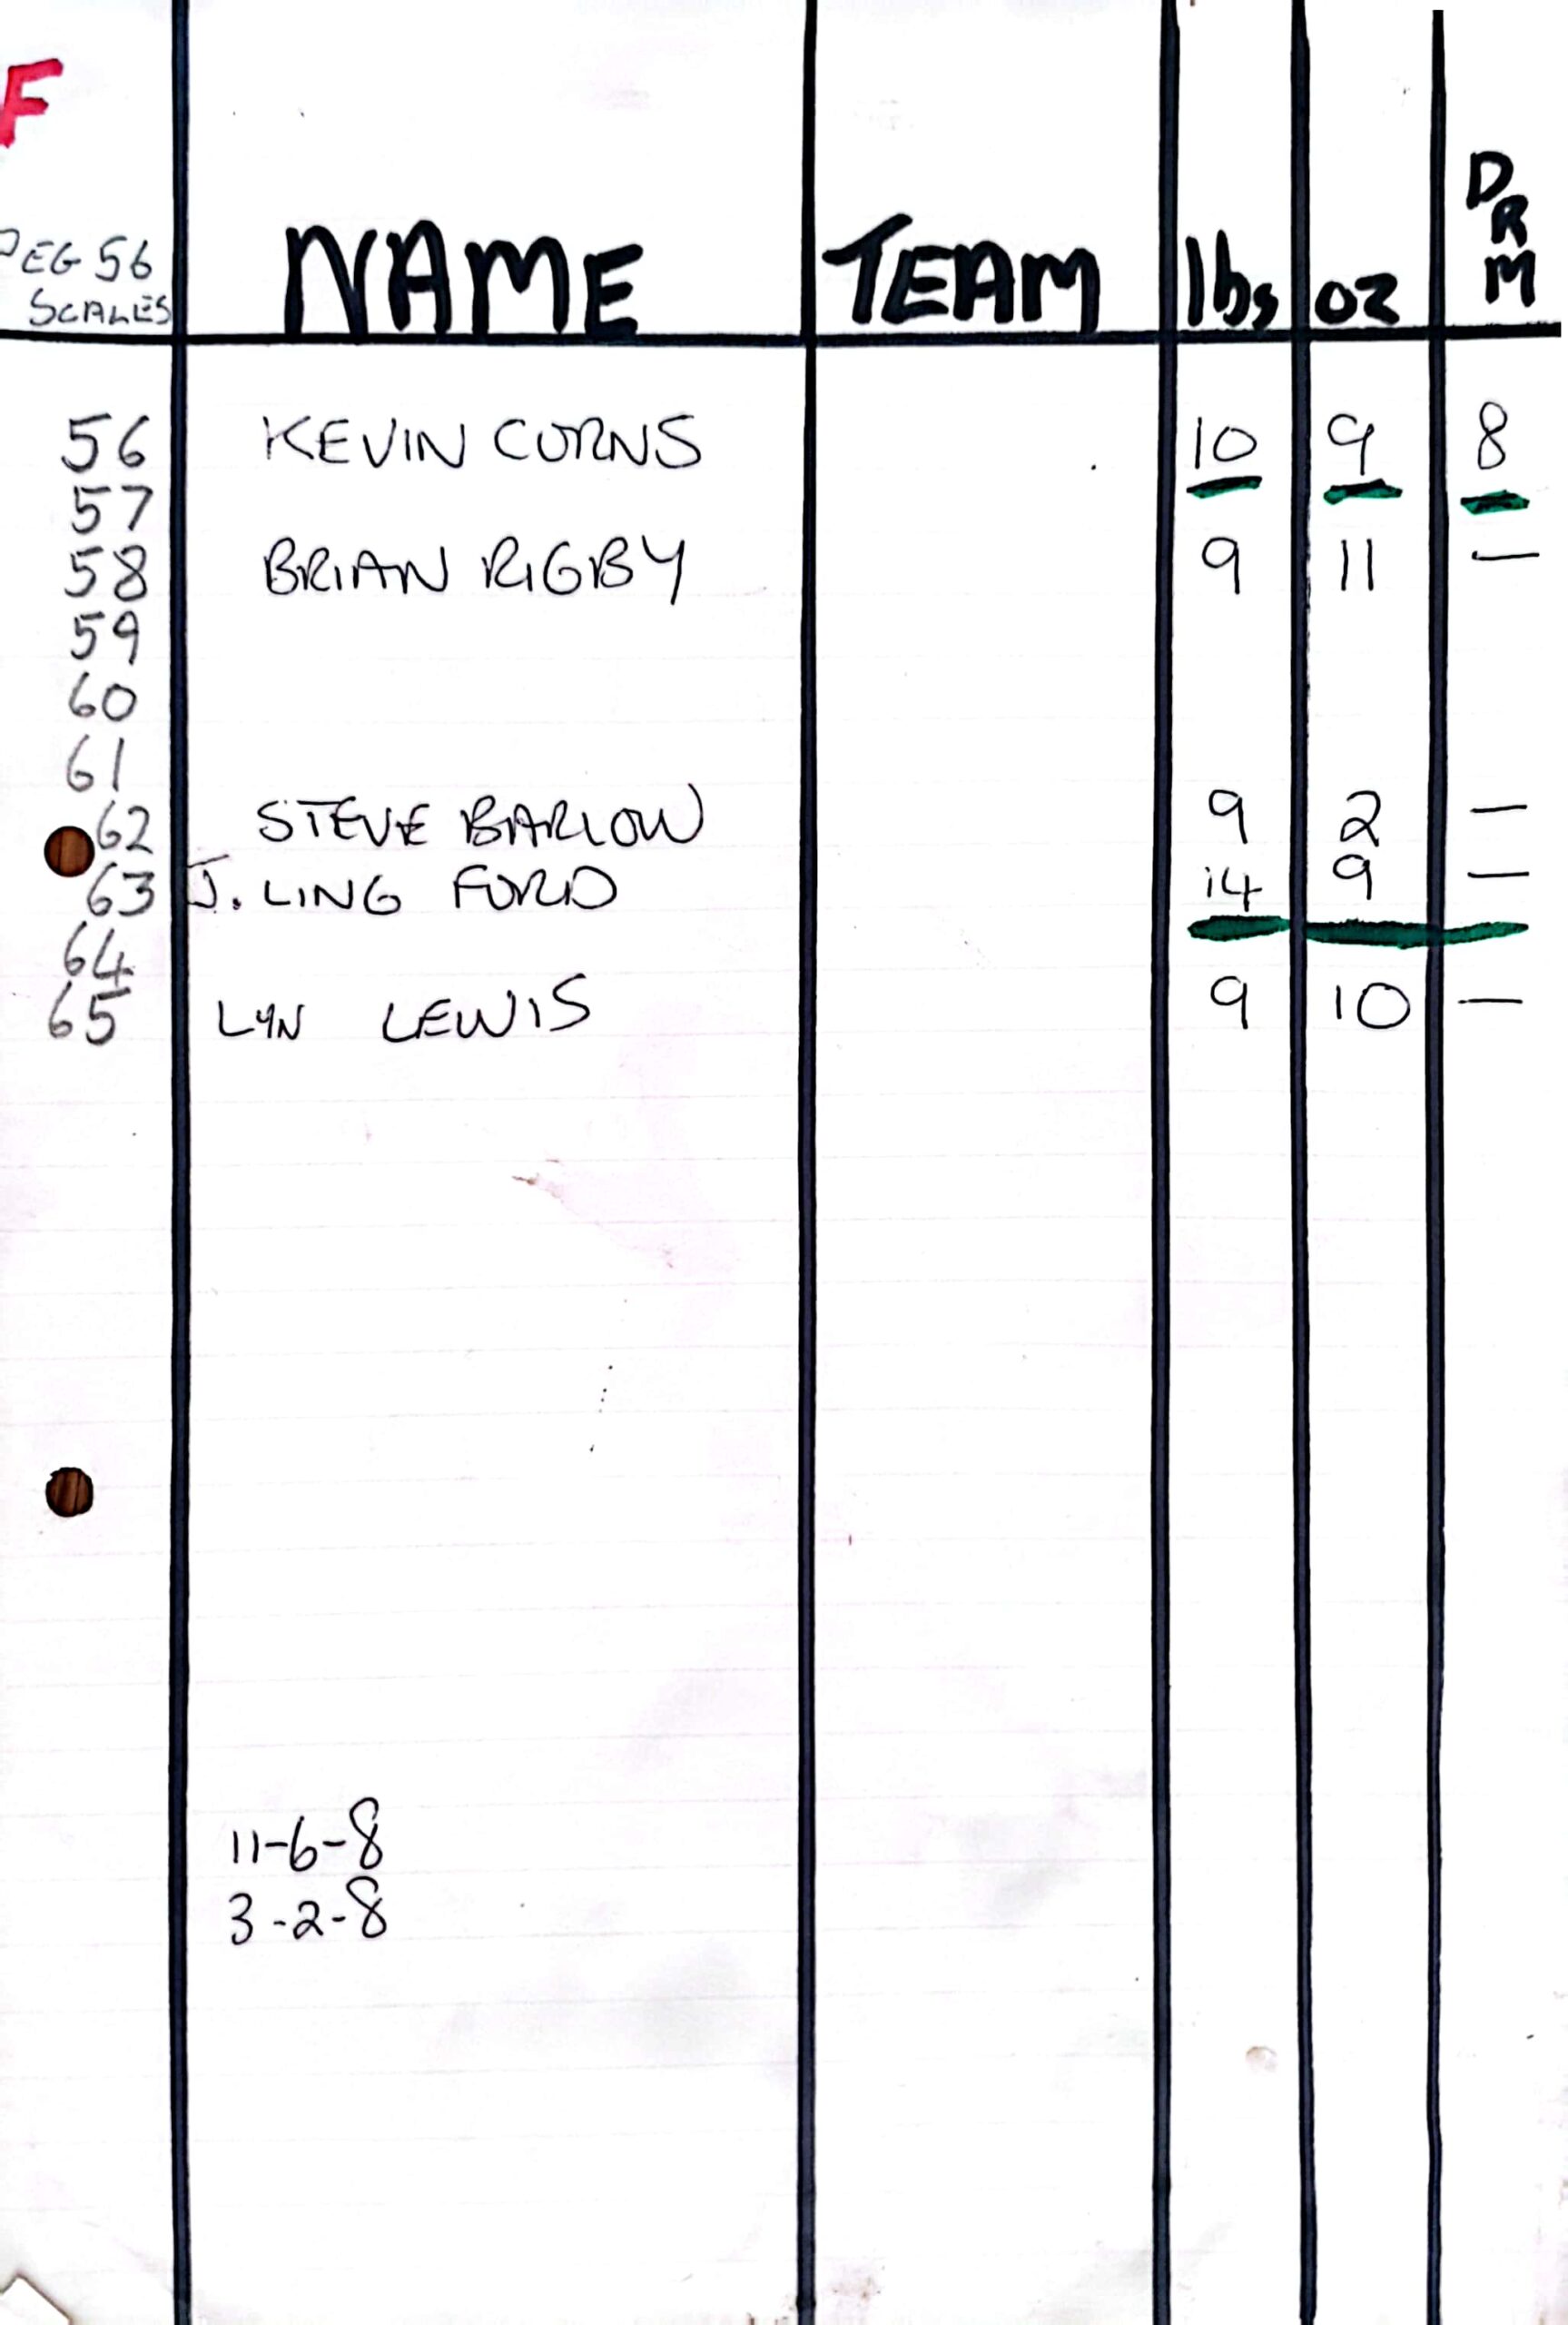 F
PEG 56 SCALES NAME TEAM lbs oz DRM
56 KEVIN CORNS 10 9 8
57
58 BRIAN RIGBY 9 11 —
59
60
61
62 STEVE BARLOW 9 2 —
63 J. LING FORD 14 9 —
64
65 LYN LEWIS 9 10 —
11-6-8
3-2-8